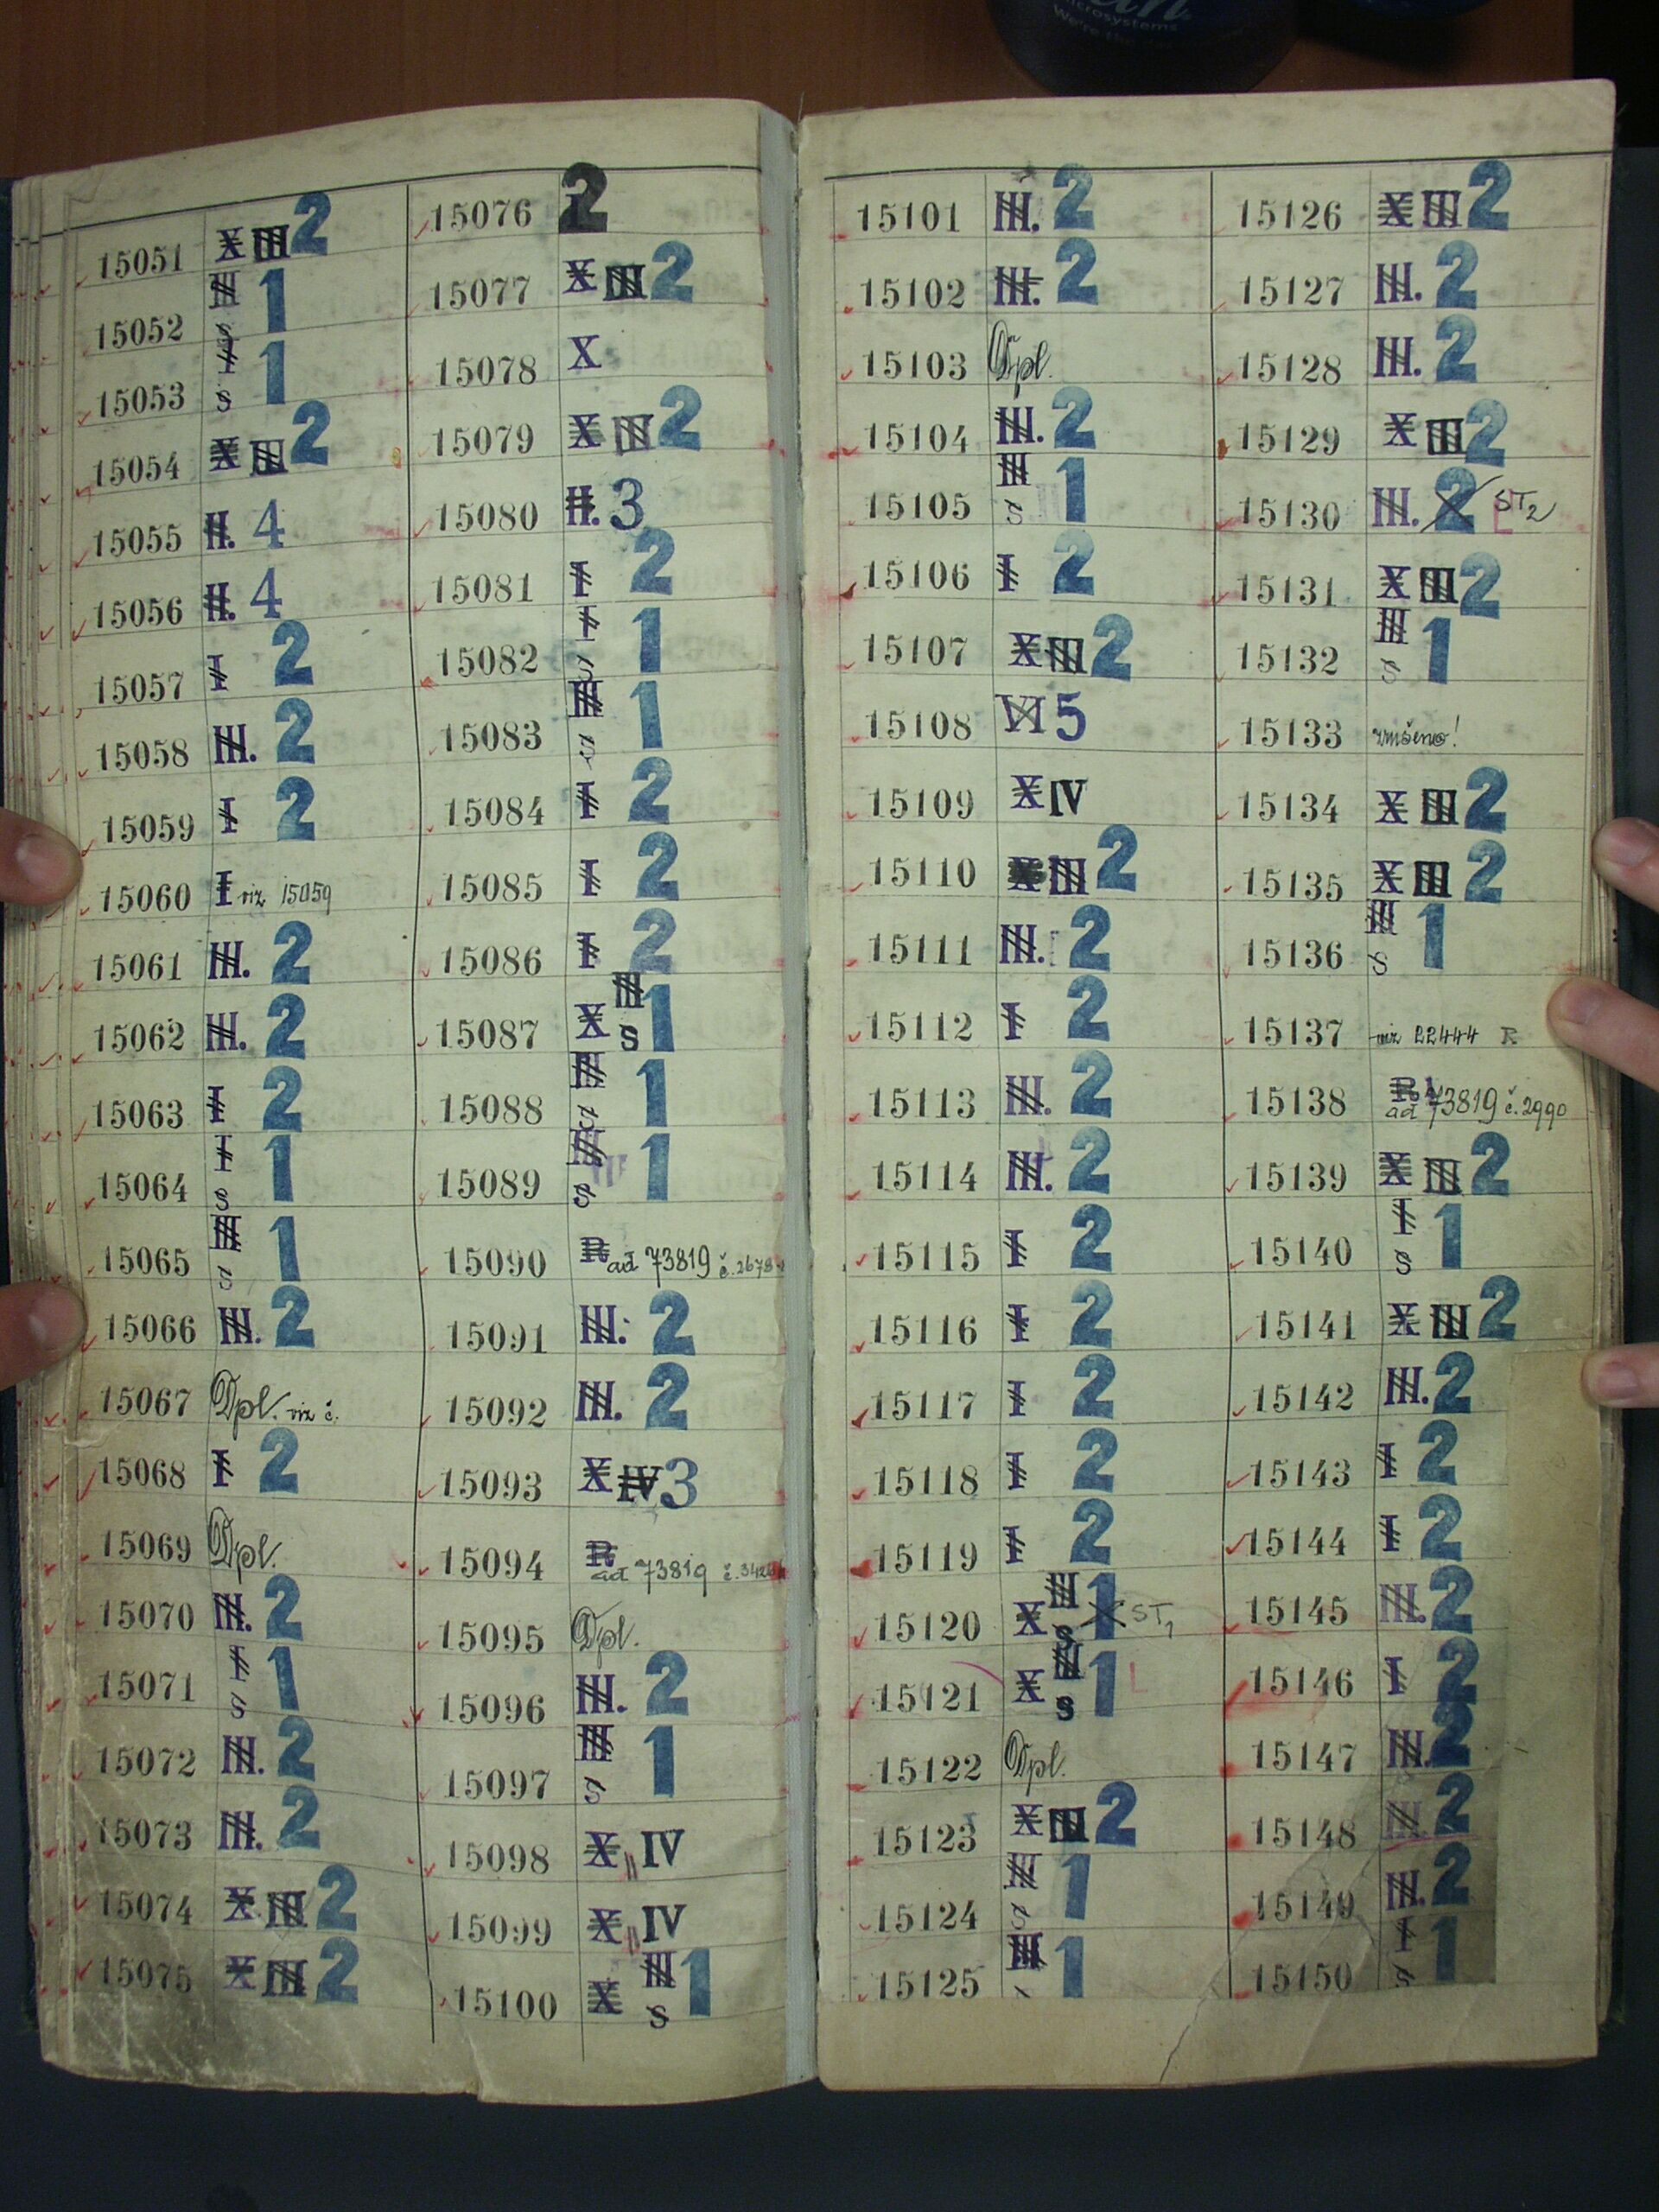 microsystems
We're the
15051 X III 2
15052 III s 1
15053 I s 1
15054 X III 2
15055 II. 4
15056 II. 4
15057 I 2
15058 III. 2
15059 I 2
15060 I viz 15059
15061 III. 2
15062 III. 2
15063 I 2
15064 I s 1
15065 III s 1
15066 III. 2
15067 Dpl. viz č.
15068 I 2
15069 Dpl.
15070 III. 2
15071 I s 1
15072 III. 2
15073 III. 2
15074 X III 2
15075 X III 2
15076 2
15077 X III 2
15078 X
15079 X III 2
15080 II. 3
15081 I 2
15082 I s 1
15083 III s 1
15084 I 2
15085 I 2
15086 I 2
15087 X III s 1
15088 III s 1
15089 III s 1
15090 R ad 73819 č. 2678
15091 III. 2
15092 III. 2
15093 X IV 3
15094 R ad 73819 č.
15095 Dpl.
15096 III. 2
15097 III s 1
15098 X IV
15099 X IV
15100 X III s 1
15101 III. 2
15102 III. 2
15103 Dpl.
15104 III. 2
15105 III s 1
15106 I 2
15107 X III 2
15108 VI 5
15109 X IV
15110 X III 2
15111 III. 2
15112 I 2
15113 III. 2
15114 III. 2
15115 I 2
15116 I 2
15117 I 2
15118 I 2
15119 I 2
15120 X III s 1 ST1
15121 X III s 1 L
15122 Dpl.
15123 X III 2
15124 III s 1
15125 III s 1
15126 X III 2
15127 III. 2
15128 III. 2
15129 X III 2
15130 III. 2 L ST2
15131 X III 2
15132 III s 1
15133
15134 X III 2
15135 X III 2
15136 III s 1
15137 viz 22444 R
15138 R ad 73819 č. 2990
15139 X III 2
15140 I s 1
15141 X III 2
15142 III. 2
15143 I 2
15144 I 2
15145 III. 2
15146 I 2
15147 III. 2
15148 III. 2
15149 III. 2
15150 I s 1